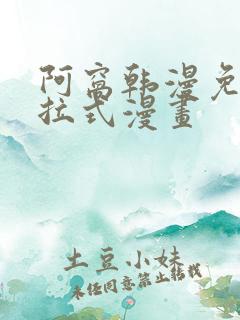 阿窩韩漫免
拉式漫畫
土豆小妹
未经同意禁止转载